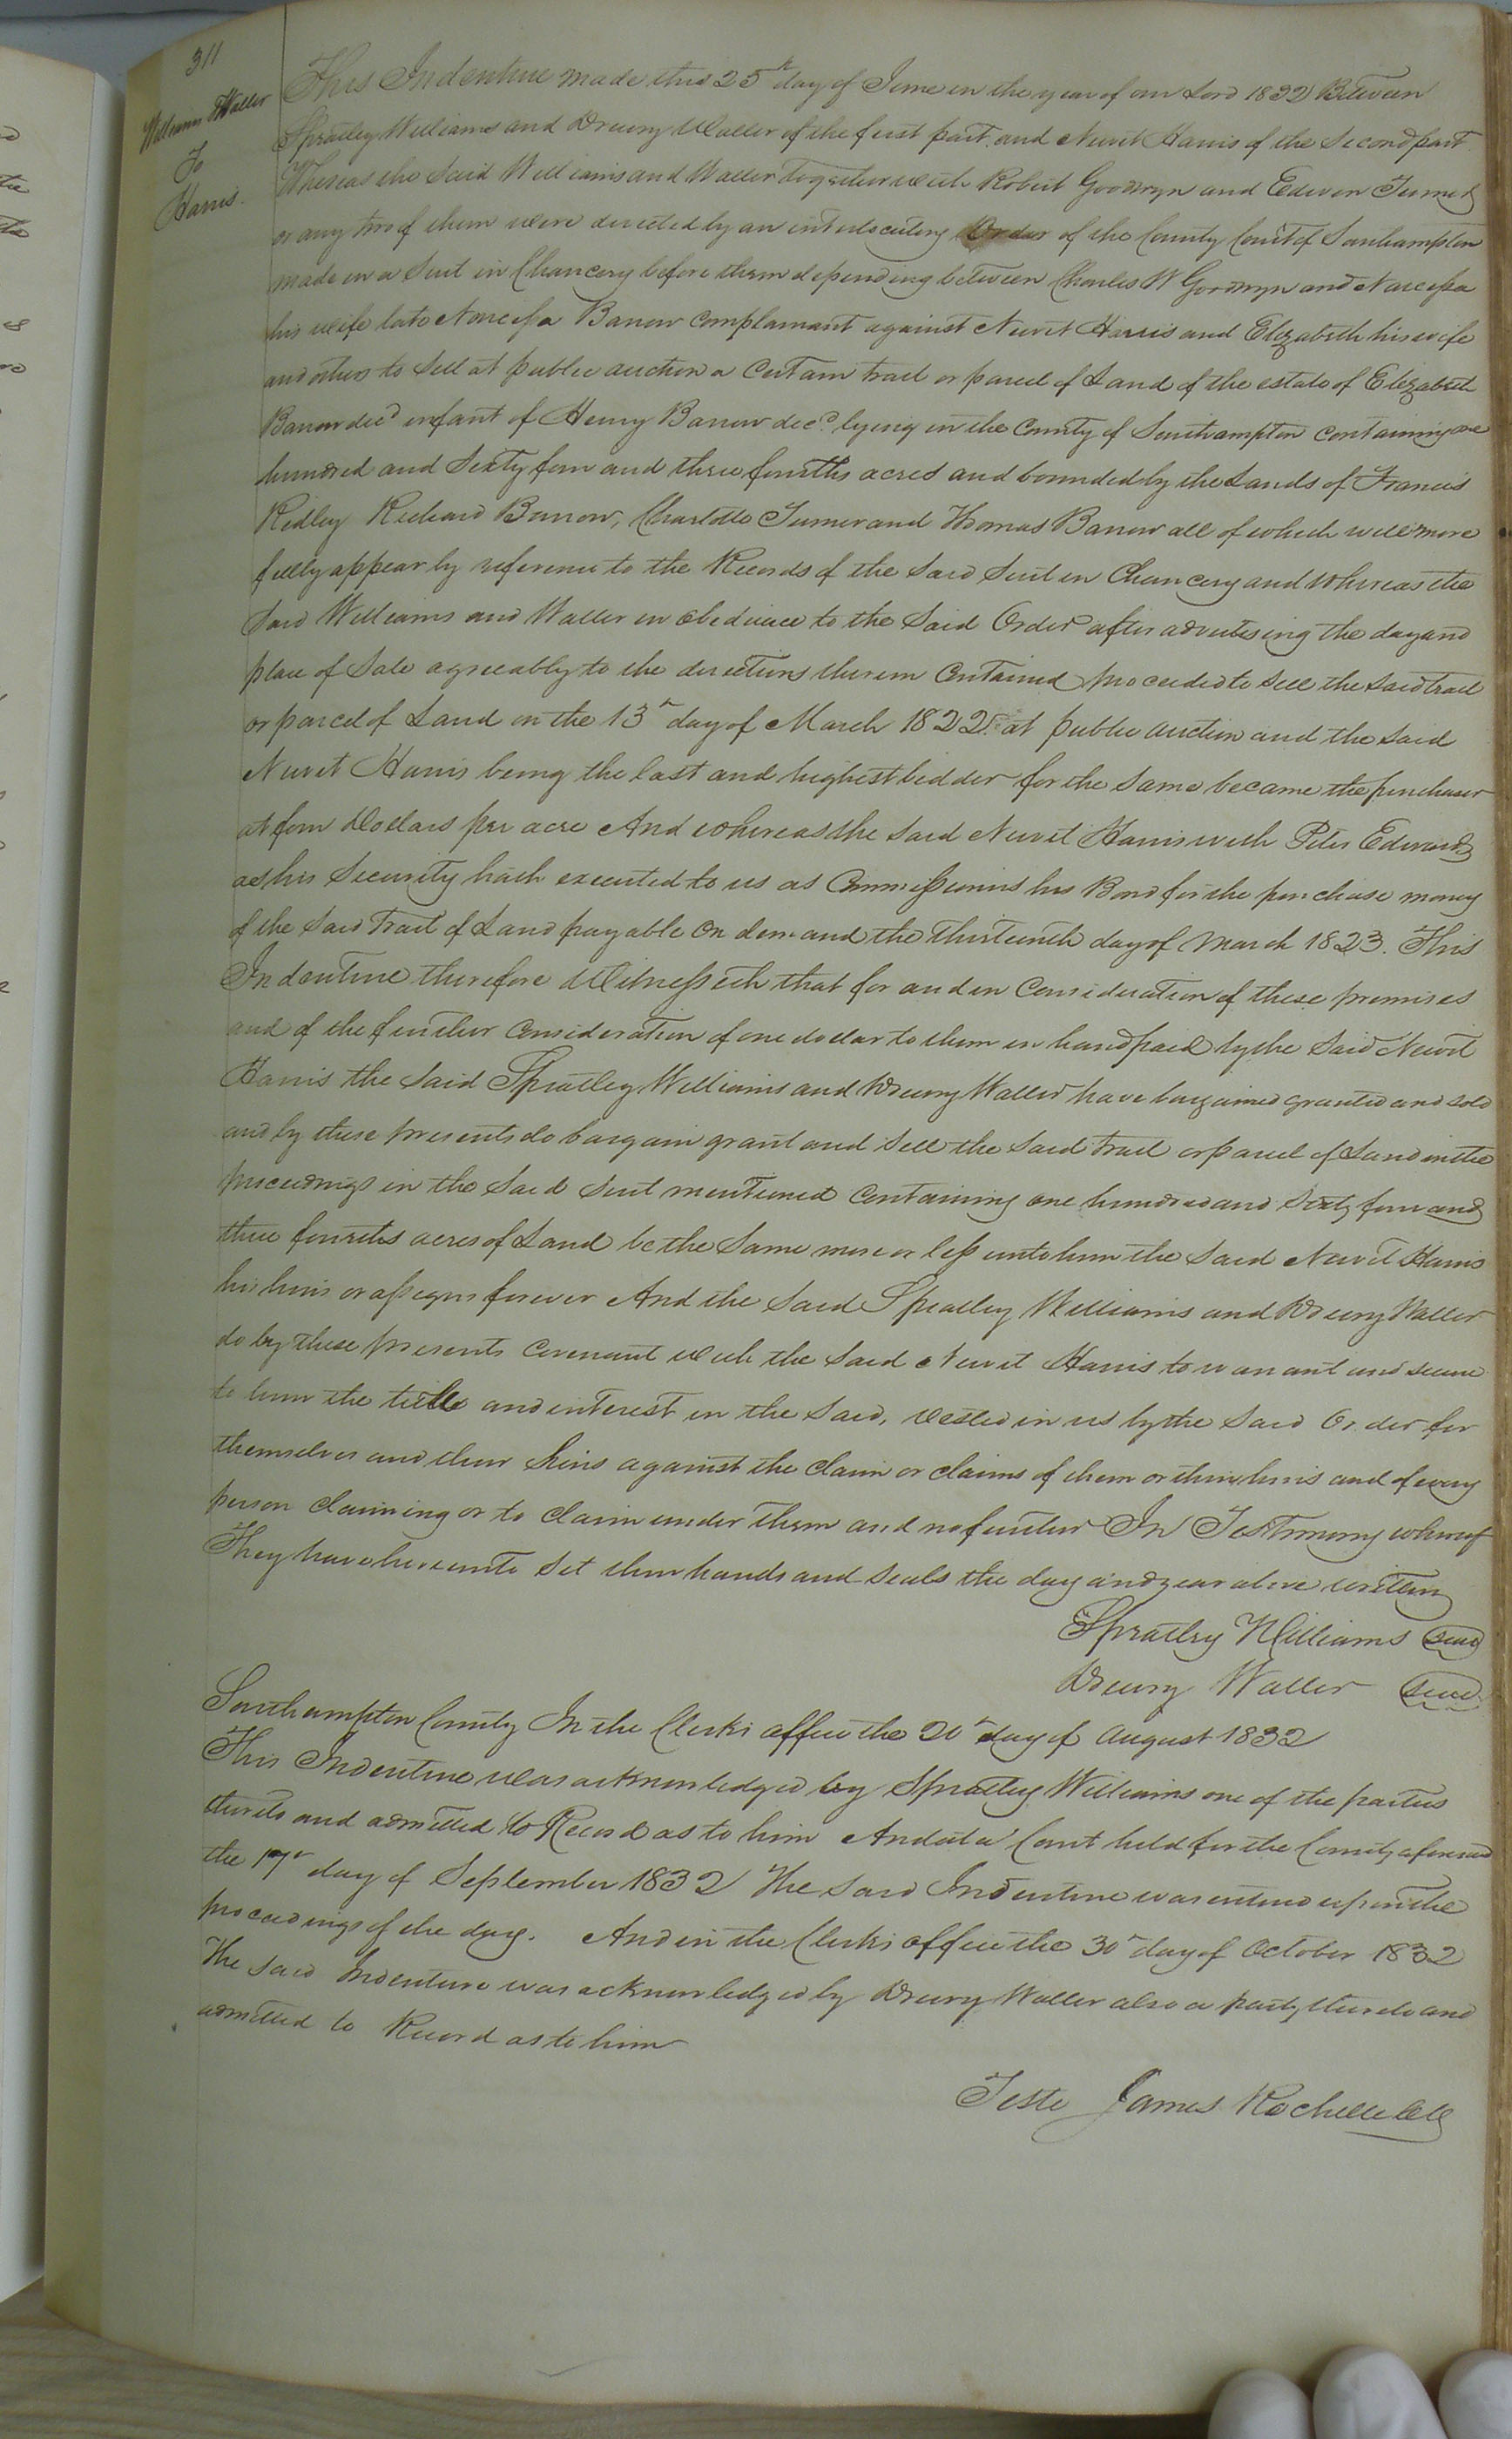 311
Williams & Waller
To
Harris.
This Indenture made this 25th day of June in the year of our Lord 1832 Between
Spratley Williams and Drewry Waller of the first part and Newit Harris of the Second part
Whereas the Said Williams and Waller together with Robert Goodwyn and Edwin Turner
or any two of them were directed by an interlocutory Order of the County Court of Southampton
made in a Suit in Chancery before them depending between Charles W Goodwyn and Narcissa
his wife late Narcissa Barrow Complainant against Newit Harris and Elizabeth his wife
and others to Sell at public auction a Certain tract or parcel of Land of the estate of Elizabeth
Barrow decd infant of Henry Barrow decd. lying in the County of Southampton Containing one
hundred and Sixty four and three fourths acres and bounded by the Lands of Francis
Ridley Richard Barrow, Charlotte Turner and Thomas Barrow all of which will more
fully appear by reference to the Records of the Said Suit in Chancery and Whereas the
Said Williams and Waller in obedience to the Said Order after advertising the day and
place of Sale agreeably to the directions therein Contained proceeded to Sell the Said tract
or parcel of Land on the 13th day of March 1822 at public auction and the Said
Newit Harris being the last and highest bidder for the Same became the purchaser
at four Dollars per acre And whereas the Said Newit Harris with Peter Edwards
as his Security hath executed to us as Commissioners his Bond for the purchase money
of the Said Tract of Land payable On demand the thirteenth day of March 1823. This
Indenture therefore Witnesseth that for and in Consideration of these premises
and of the further Consideration of one dollar to them in hand paid by the Said Newit
Harris the Said Spratley Williams and Drewry Waller have bargained granted and sold
and by these presents do bargain grant and Sell the Said tract or parcel of Land in the
proceedings in the Said Suit mentioned Containing one hundred and Sixty four and
three fourths acres of Land be the Same more or less unto him the Said Newit Harris
his heirs or assigns forever And the Said Spratley Williams and Drewry Waller
do by these presents Covenant with the Said Newit Harris to warrant and secure
to him the title and interest in the Said, Vested in us by the Said Order for
themselves and their heirs against the Claim or claims of them or their heirs and of every
person Claiming or to Claim under them and no further In Testimony whereof
They have hereunto Set their hands and Seals the day and year above written
Spratley Williams Seal
Drewry Waller Seal
Southampton County In the Clerks office the 20th day of August 1832
This Indenture was acknowledged by Spratley Williams one of the parties
thereto and admitted to Record as to him And at a Court held for the County aforesaid
the 17th day of September 1832 The Said Indenture was entered upon the
proceedings of the day. And in the Clerks office the 30th day of October 1832
The Said Indenture was acknowledged by Drewry Waller also a party thereto and
admitted to Record as to him
Teste James Rochelle Clk